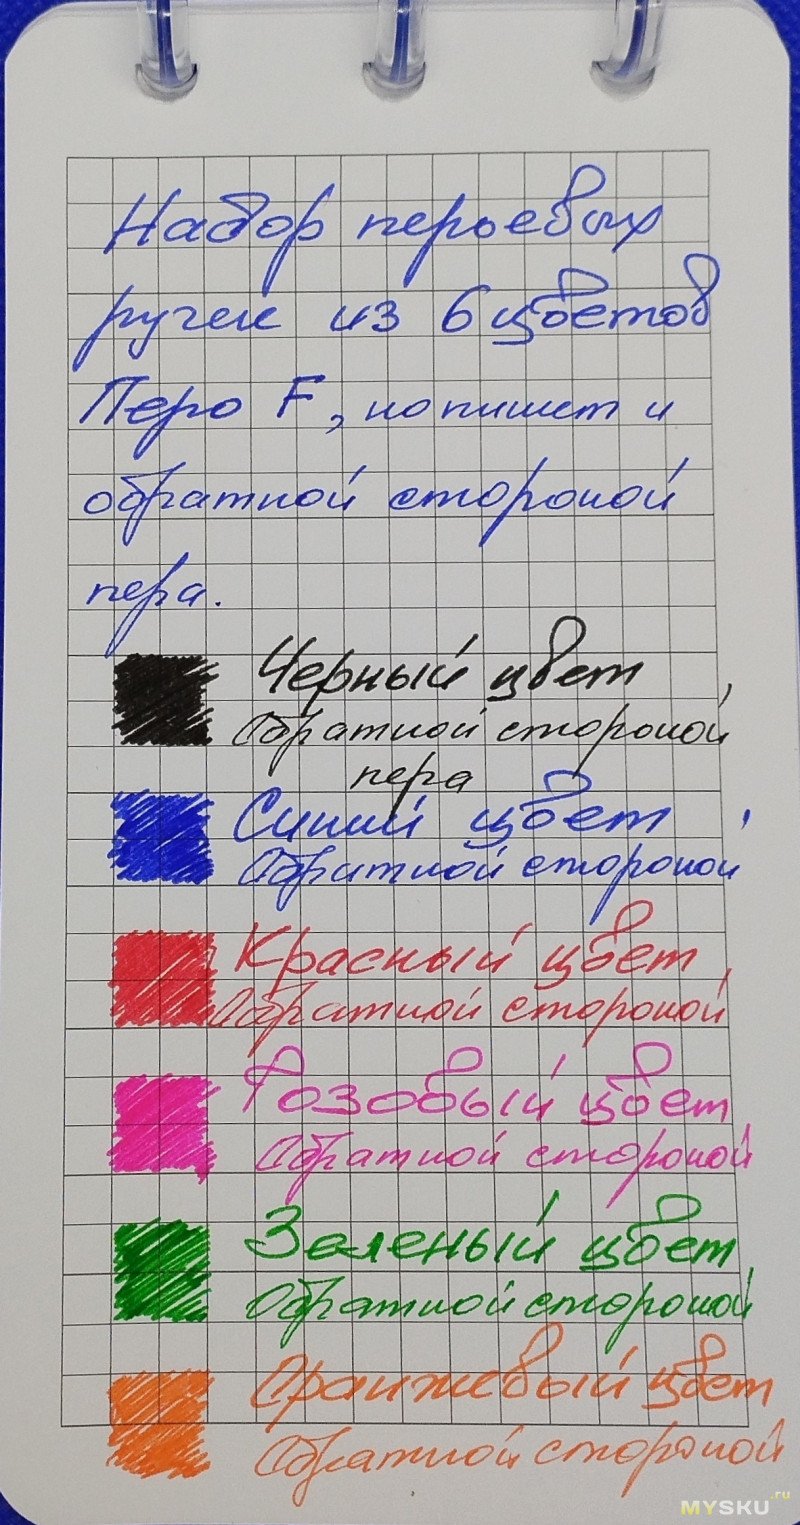 Набор перьевых
ручек из 6 цветов
Перо F, но пишет и
обратной стороной
пера.
Черный цвет
Обратной стороной
пера
Синий цвет
Обратной стороной
Красный цвет
Обратной стороной
Розовый цвет
Обратной стороной
Зеленый цвет
Обратной стороной
Оранжевый цвет
Обратной стороной
MYSKU.ru